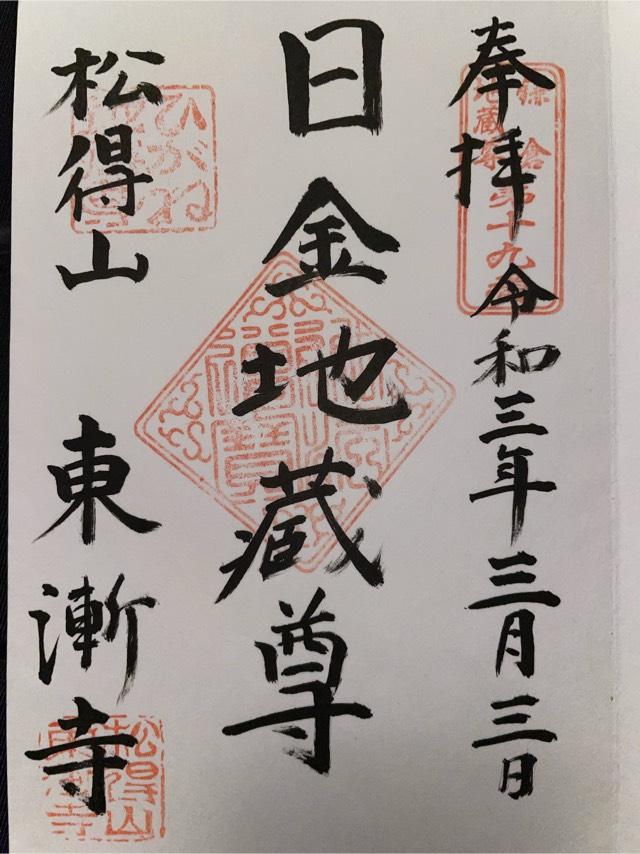 奉拝 令和三年三月三日
鎌倉
地蔵尊
第十九番
日金地蔵尊
松得山 東漸寺
ひがね
松得山
東漸寺